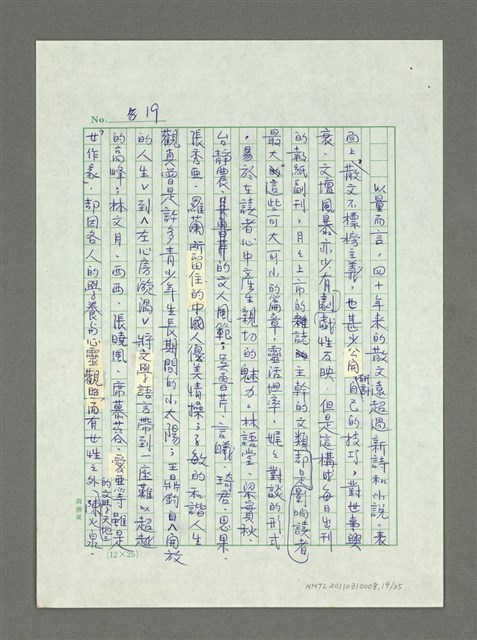 No. 19
以量而言，四十年來的散文遠超過新詩和小說。表
面上，散文不標榜主義，也甚少公開研討自己的技巧，對世事興
衰、文壇風暴亦少有劇戲性反映。但是這構成每日出刊
的報紙副刊，月月上市的雜誌主幹的文類却是影响讀者
最大的。這些可大可小的篇章，靈活坦率，娓娓對談的形式
，易於在讀者心中產生親切的魅力。林語堂、梁實秋、
台靜農、的文人風範；吳魯芹、言曦、琦君、思果、
張秀亞、羅蘭所留住的中國人優美情操；子敏的和諧人生
觀真曾是許多青少年生長期間的小太陽；王鼎鈞自〈開放
的人生〉到〈左心房漩渦〉將文學語言帶到一座難以超越
的高峰；林文月、西西、張曉風、席慕蓉、愛亞等雖是
女作家，却因各人的學養與心靈觀照而有世性之外的文學天地。陳火泉、
(12×25)
NMTL20110310008,19/25